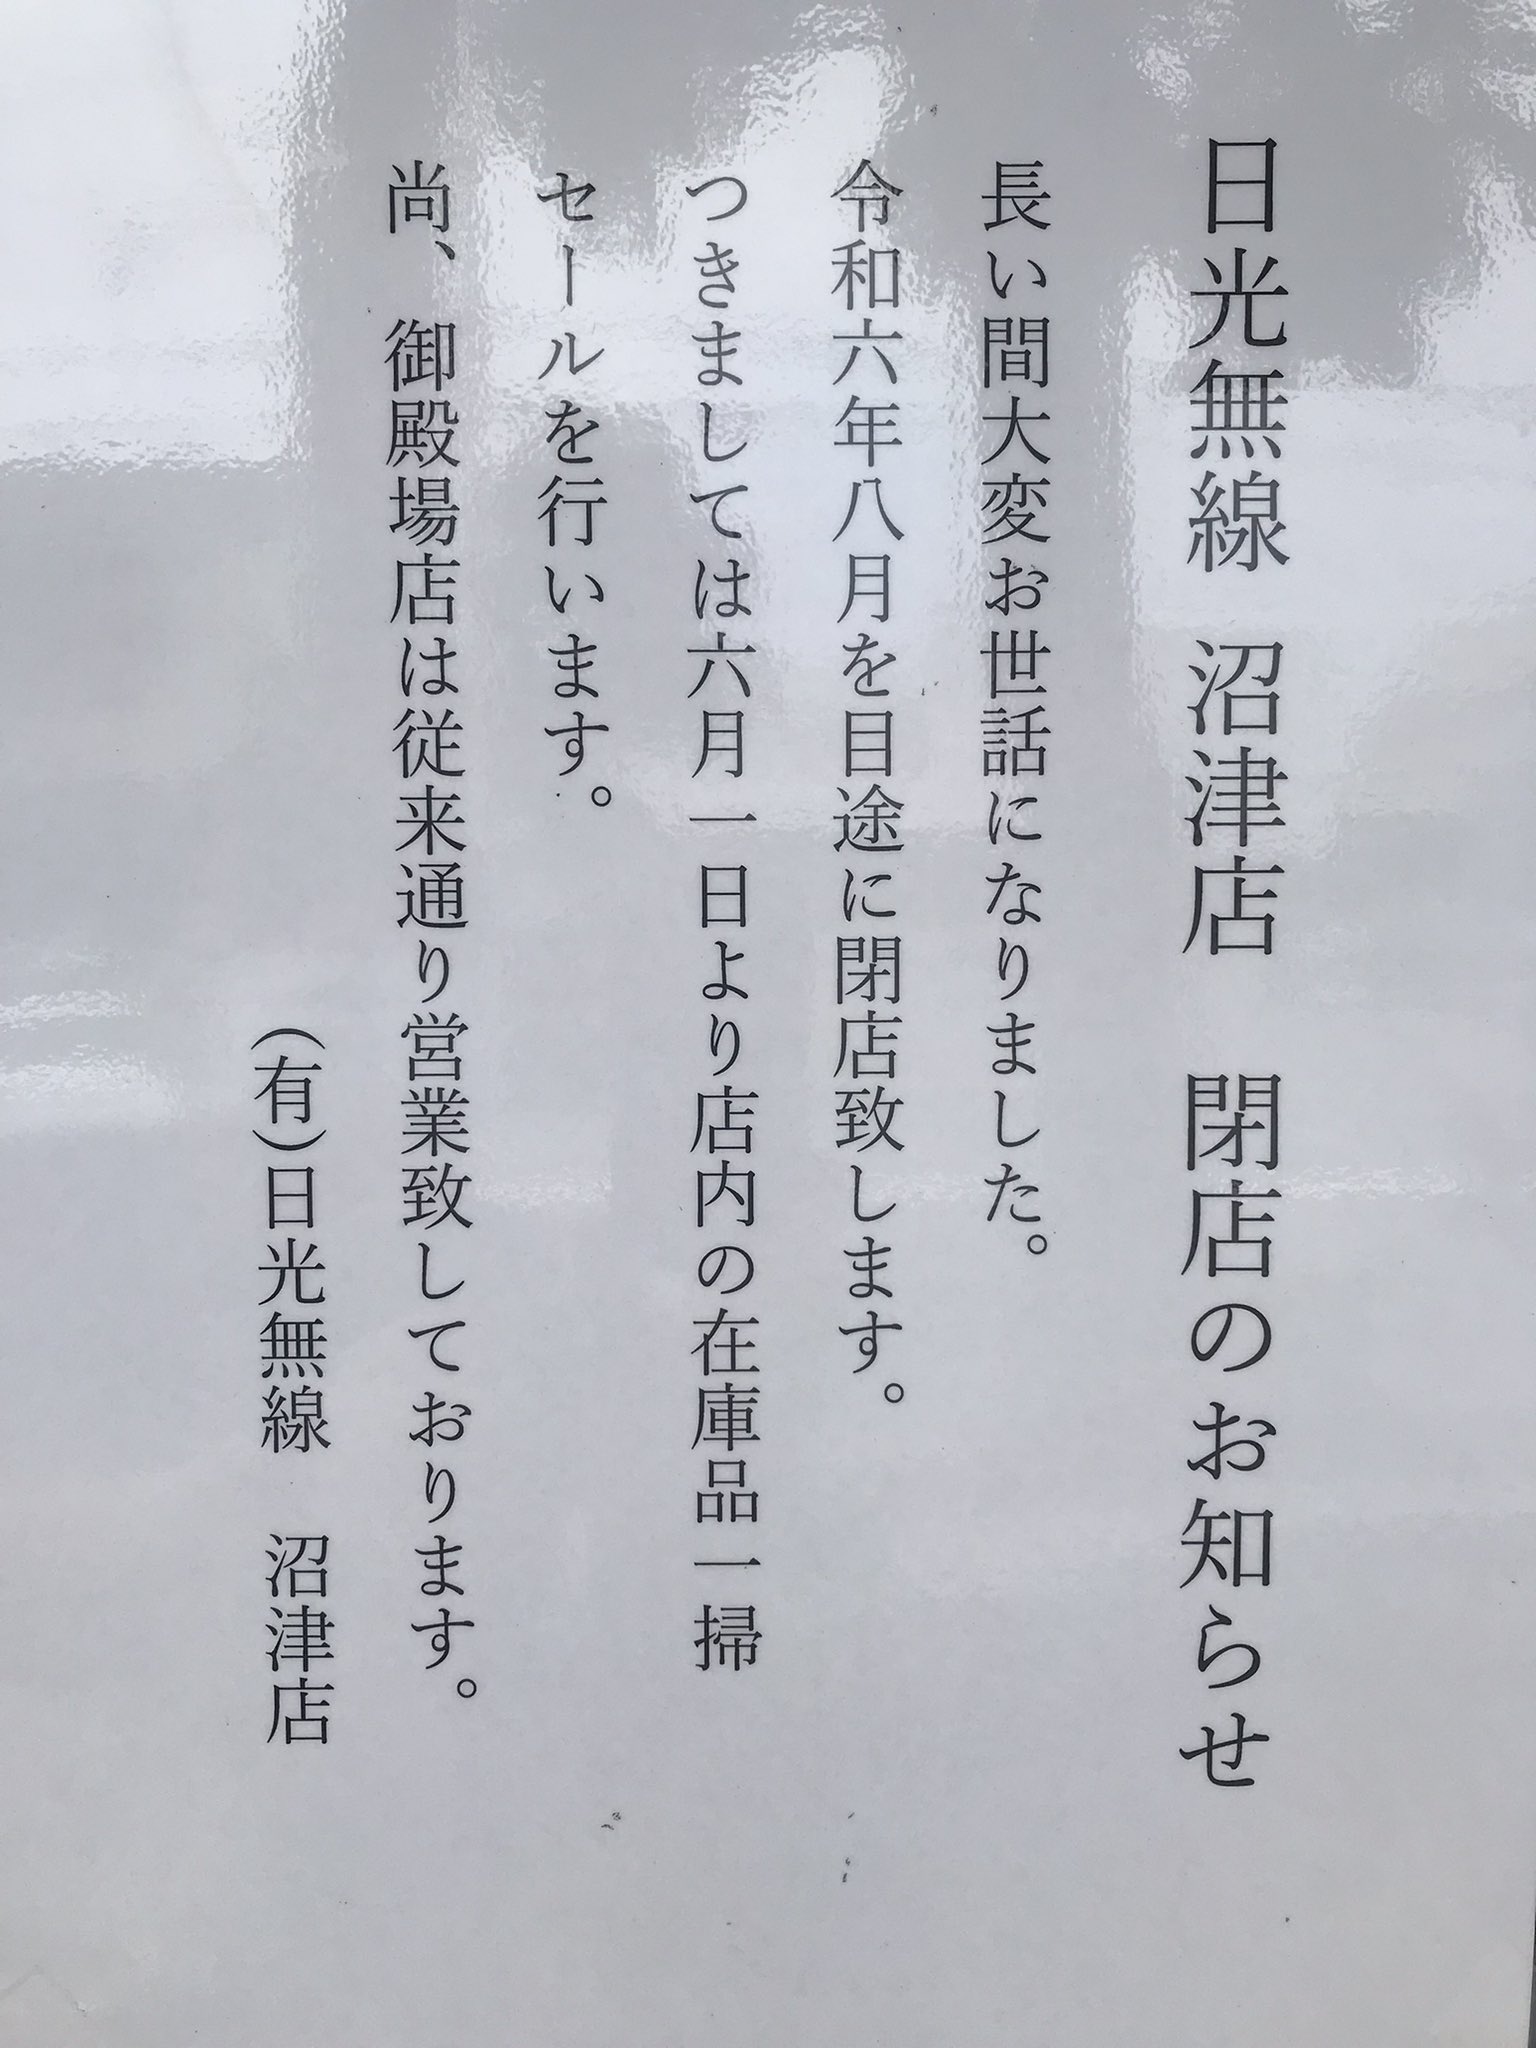 日光無線　沼津店　閉店のお知らせ
長い間大変お世話になりました。
令和六年八月を目途に閉店致します。
つきましては六月一日より店内の在庫品一掃
セールを行います。
尚、御殿場店は従来通り営業致しております。
(有)日光無線　沼津店